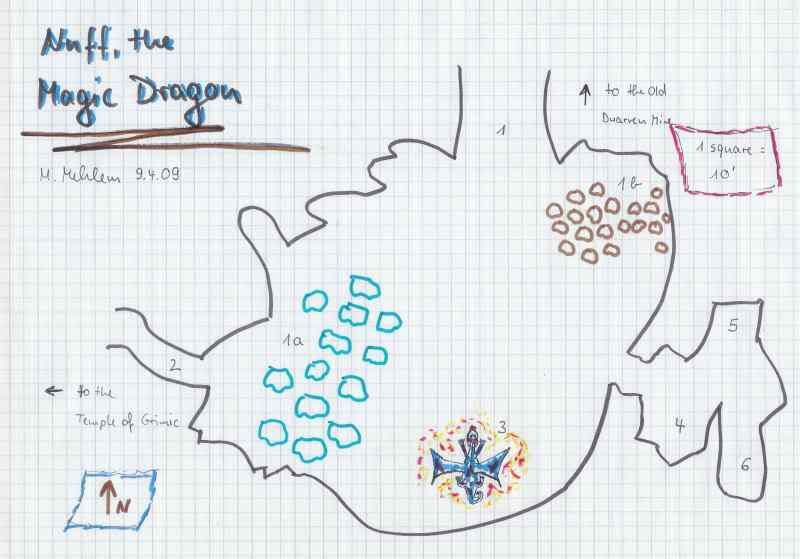 Nuff, the
Magic Dragon
M. Mehlem 9.4.09
1
↑ to the Old
Dwarven Mine
1 square =
10'
1b
1a
2
← to the
Temple of Grimic
3
4
5
6
N